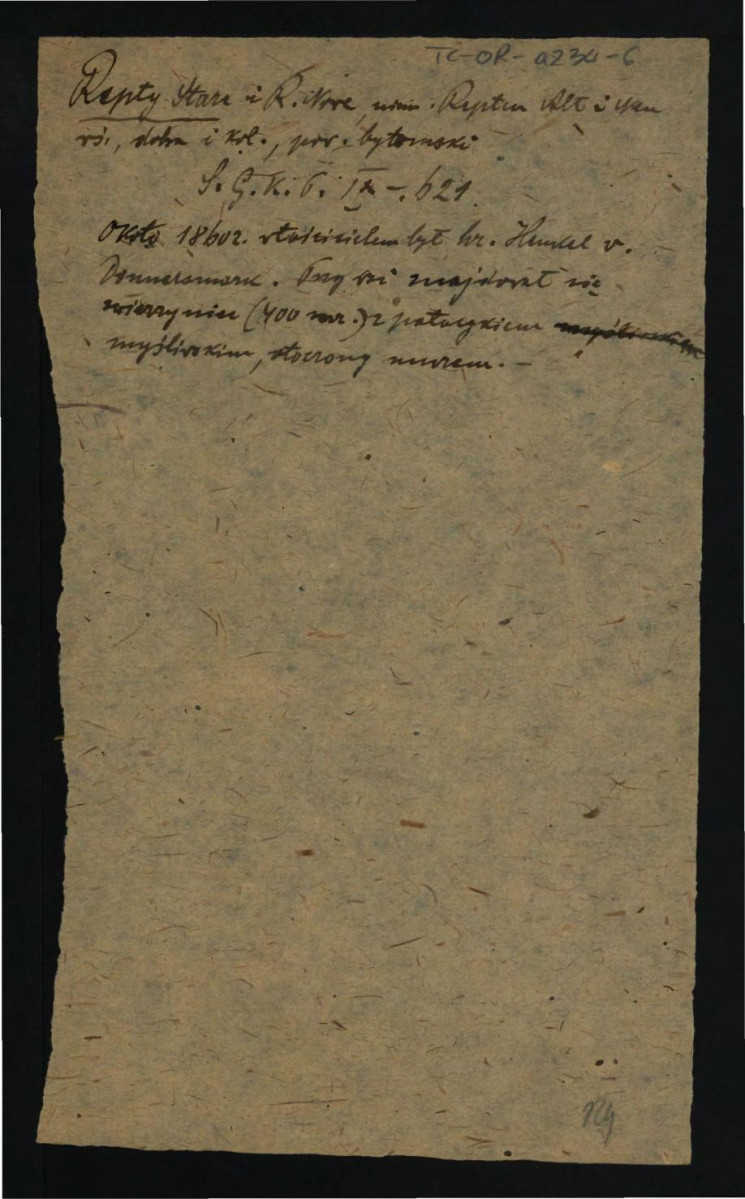 TC-OP-0234-6
Repty Stare i R. Nowe, niem. Repten Alt i Neu
wś., dobra i kol., pow. bytomski
S. G. K. P. IX - . 621
Około 1860 r. właścicielem był hr. Henkel v.
Donnersmark. Przy wsi znajdował się
zwierzyniec (400 mr.) z pałacykiem myśliwskim
myśliwskim, otoczony murem. —